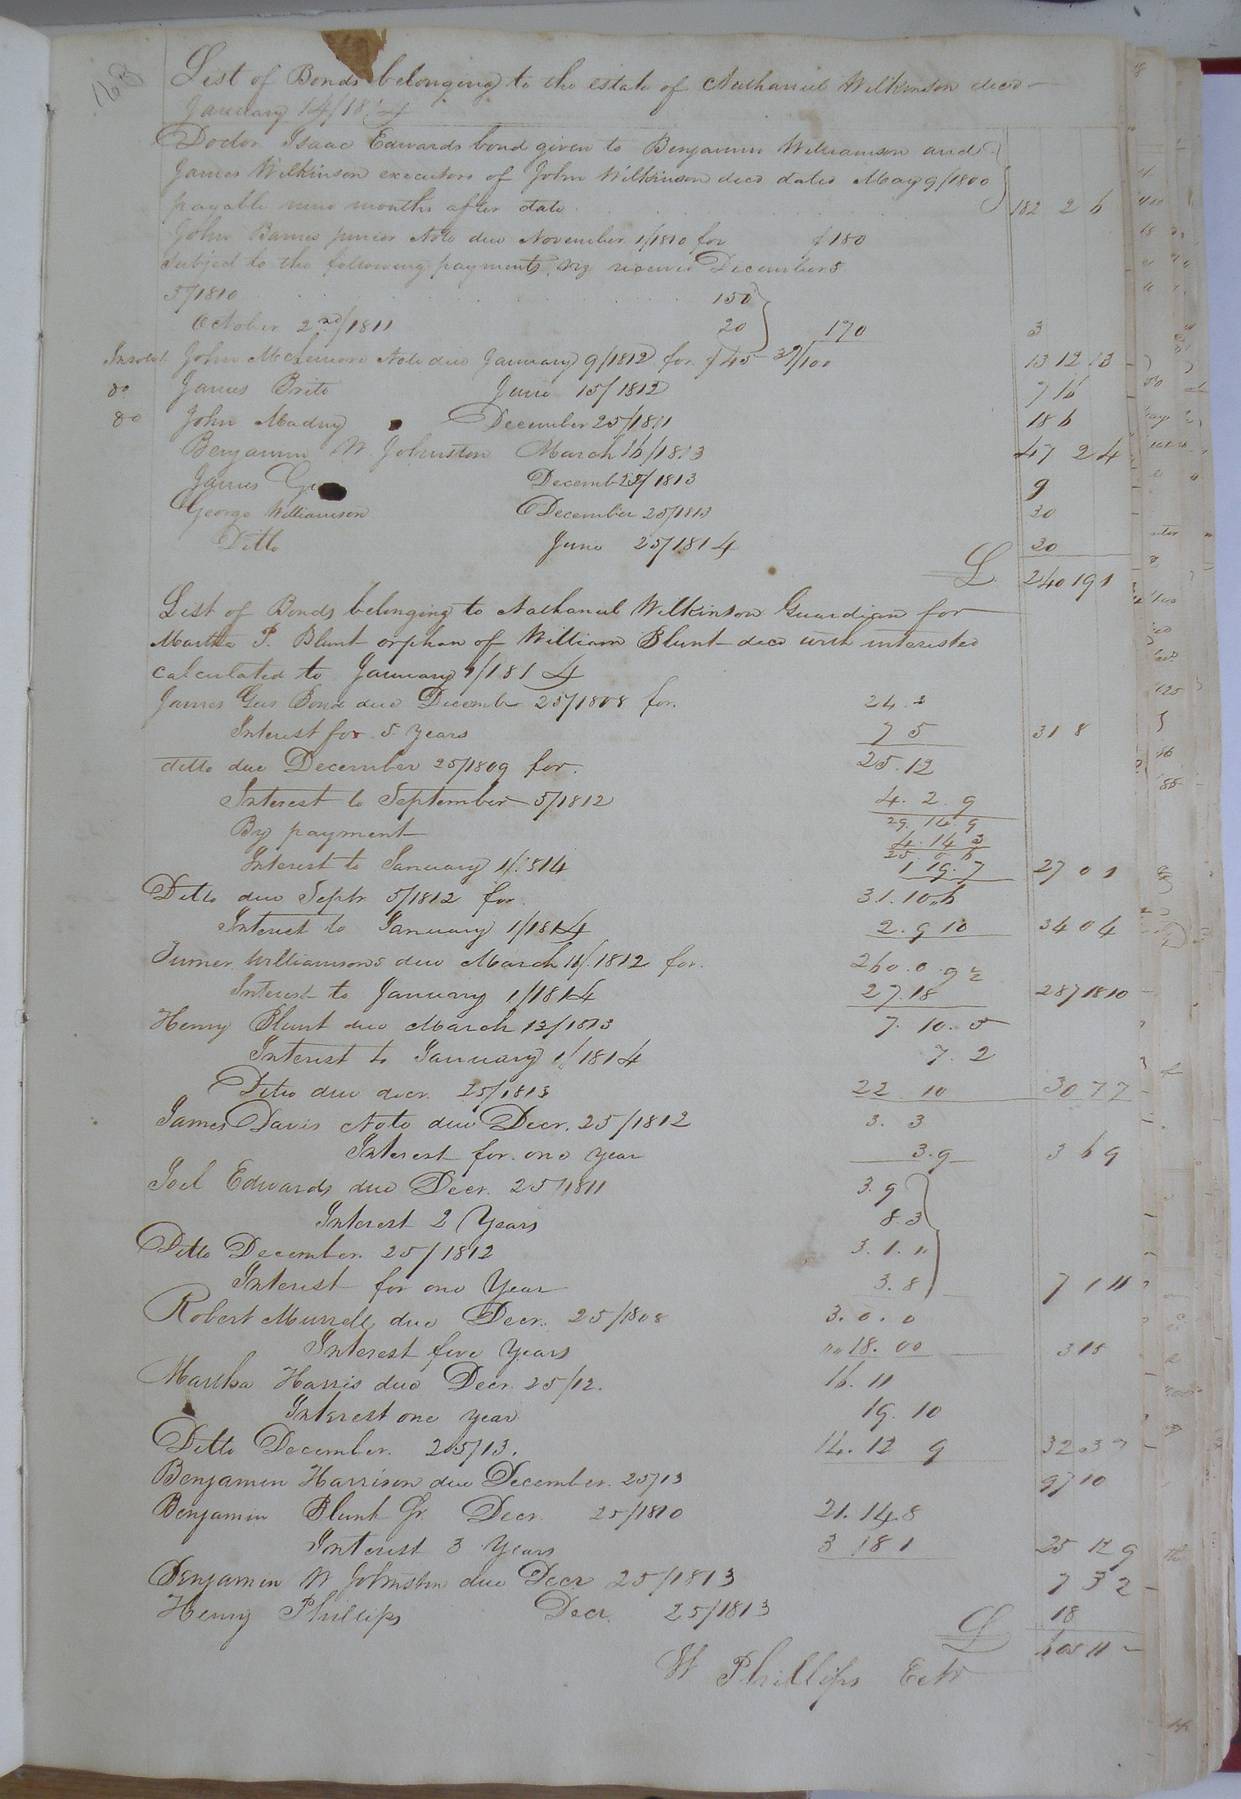 163
List of Bonds belonging to the estate of Nathaniel Wilkinson decd
January 14/1814
Doctor Isaac Edwards bond given to Benjamin Williamson and
James Wilkinson executors of John Wilkinson decd dated May 9/1800
payable nine months after date 182 2 6
John Barnes junior Note due November 1/1810 for £180
Subject to the following payments received December
5/1810 150
October 2nd/1811 20 170 3
Insolvt John Note due January 9/1812 for $45 39/100 13 12 3
do James Brito June 15/1812 7 16
do John Madry December 25/1811 18 6
Benjamin W. Johnston March 16/1813 47 2 4
James Decemb 25/1813 9
George Williamson December 25/1813 30
Ditto June 25/1814 20
£ 240 19 1
List of Bonds belonging to Nathaniel Wilkinson Guardian for
Martha P. Blunt orphan of William Blunt decd with interested
calculated to January 1/1814
James Gus Bond due December 25/1808 for 24. 3
Interest for 5 years 7 5 31 8
ditto due December 25/1809 for. 25. 12
Interest to September 5/1812 4. 2. 9
29. 14 9
By payment 4. 14 3
25 0 6
Interest to January 1/1814 1 19. 7 27 0 1
Ditto due Septr 5/1812 for 31. 10. 6
Interest to January 1/1814 2. 9 10 34 0 4
Turner Williamsons due March 16/1812 for. 260. 0. 9½
Interest to January 1/1814 27. 18 287 18 10
Henry Blunt due March 12/1813 7. 10. 5
Interest to January 1/1814 7. 2
Ditto due decr. 25/1813 22 10 30 7 7
James Davis Note due Decr. 25/1812 3. 3
Interest for one year 3. 9 3 6 9
Joel Edwards due Decr. 25/1811 3. 9
Interest 2 Years 8 3
Ditto December. 25/1812 3. 1. 11
Interest for one Year 3. 8 7 1 11
Robert Murrell due Decr. 25/1808 3. 0. 0
Interest five Years 18. 00 3 18
Martha Harris due Decr. 25/12. 16. 11
Interest one year 19. 10
Ditto December. 25/13. 14. 12 9 32 3 7
Benjamin Harrison due December. 25/13 97 10
Benjamin Blunt Jr. Decr 25/1810 21. 14. 8
Interest 3 Years 3 18 1 25 12 9
Benjamin W Johnston due Decr 25/1813 7 3 2
Henry Phillips Decr. 25/1813 18
£ 608 11
W Phillips Extr